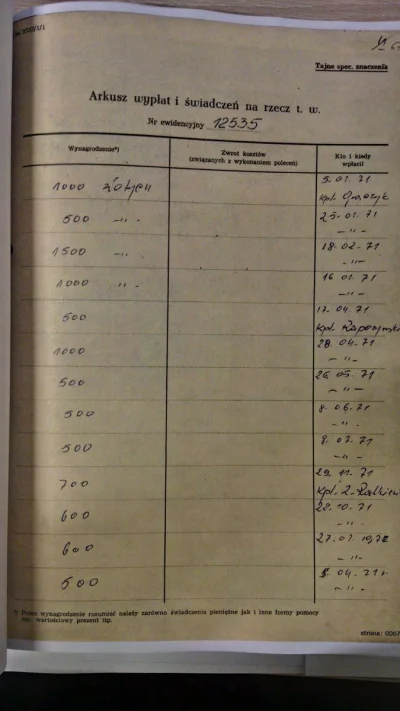 Tajne spec. znaczenia
Arkusz wypłat i świadczeń na rzecz t. w.
Nr ewidencyjny 12535
Wynagrodzenie*)
Zwrot kosztów
(związanych z wykonaniem poleceń)
Kto i kiedy
wpłacił
1000 złotych
5. 01. 71
kpt.
500 -"-
25-01. 71
-"-
1500 -"-
18. 02. 71
-"-
1000 -"-
-"-
500
17. 04. 71
kpt.
1000
28. 04. 71
-"-
500
26. 05. 71
-"-
500
8. 06. 71
-"-
500
-"-
700
29. 11. 71
kpt.
600
22. 10. 71
-"-
600
-"-
500
04.
-"-
*) Przez wynagrodzenie rozumieć należy zarówno świadczenia pieniężne jak i inne formy pomocy
np. wartościowy prezent itp.
strona: